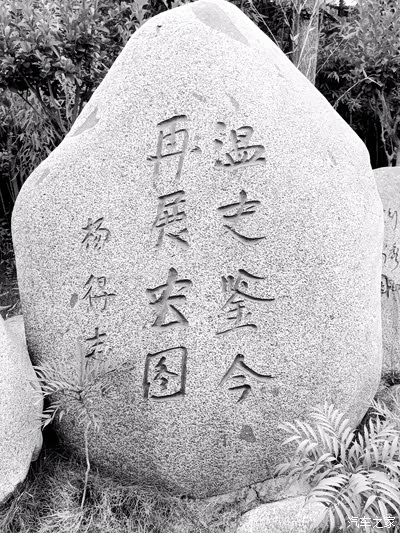 温史鉴今
再展宏图
杨得志
汽车之家